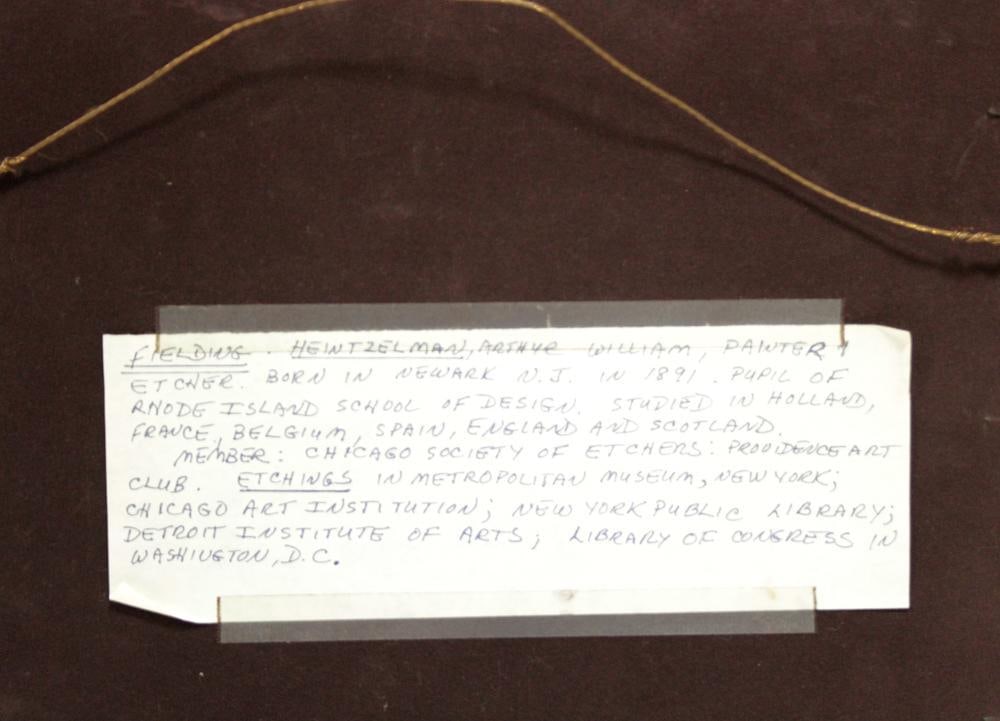 FIELDING. HEINTZELMAN, ARTHUR WILLIAM, PAINTER &
ETCHER. BORN IN NEWARK N.J. IN 1891. PUPIL OF
RHODE ISLAND SCHOOL OF DESIGN. STUDIED IN HOLLAND,
FRANCE, BELGIUM, SPAIN, ENGLAND AND SCOTLAND.
MEMBER: CHICAGO SOCIETY OF ETCHERS: PROVIDENCE ART
CLUB. ETCHINGS IN METROPOLITAN MUSEUM, NEW YORK;
CHICAGO ART INSTITUTION; NEW YORK PUBLIC LIBRARY;
DETROIT INSTITUTE OF ARTS; LIBRARY OF CONGRESS IN
WASHINGTON, D.C.